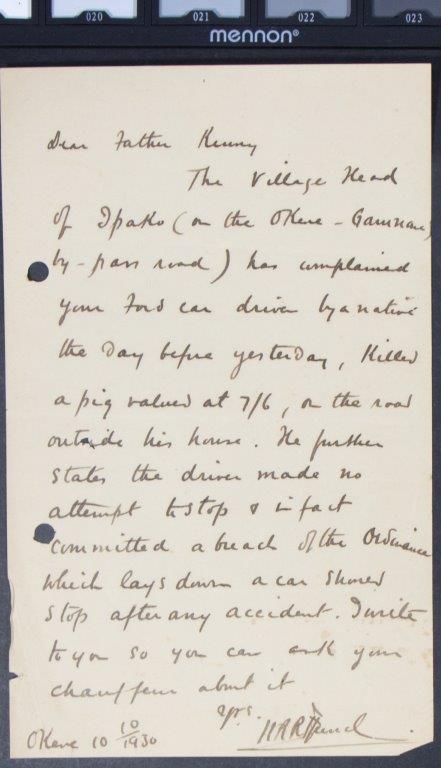 020 021 022 023
mennon®
Dear Father Kenny
The Village Head
of Ipako (on the Okene - 
by-pass road) has complained
your Ford car driven by a native
the day before yesterday, killed
a pig valued at 7/6, on the road
outside his house. He further
states the driver made no
attempt to stop & in fact
committed a breach of the Ordinance
which lays down a car should
stop after any accident. I write
to you so you can ask your
chauffeur about it
yrs.
10 10/1930